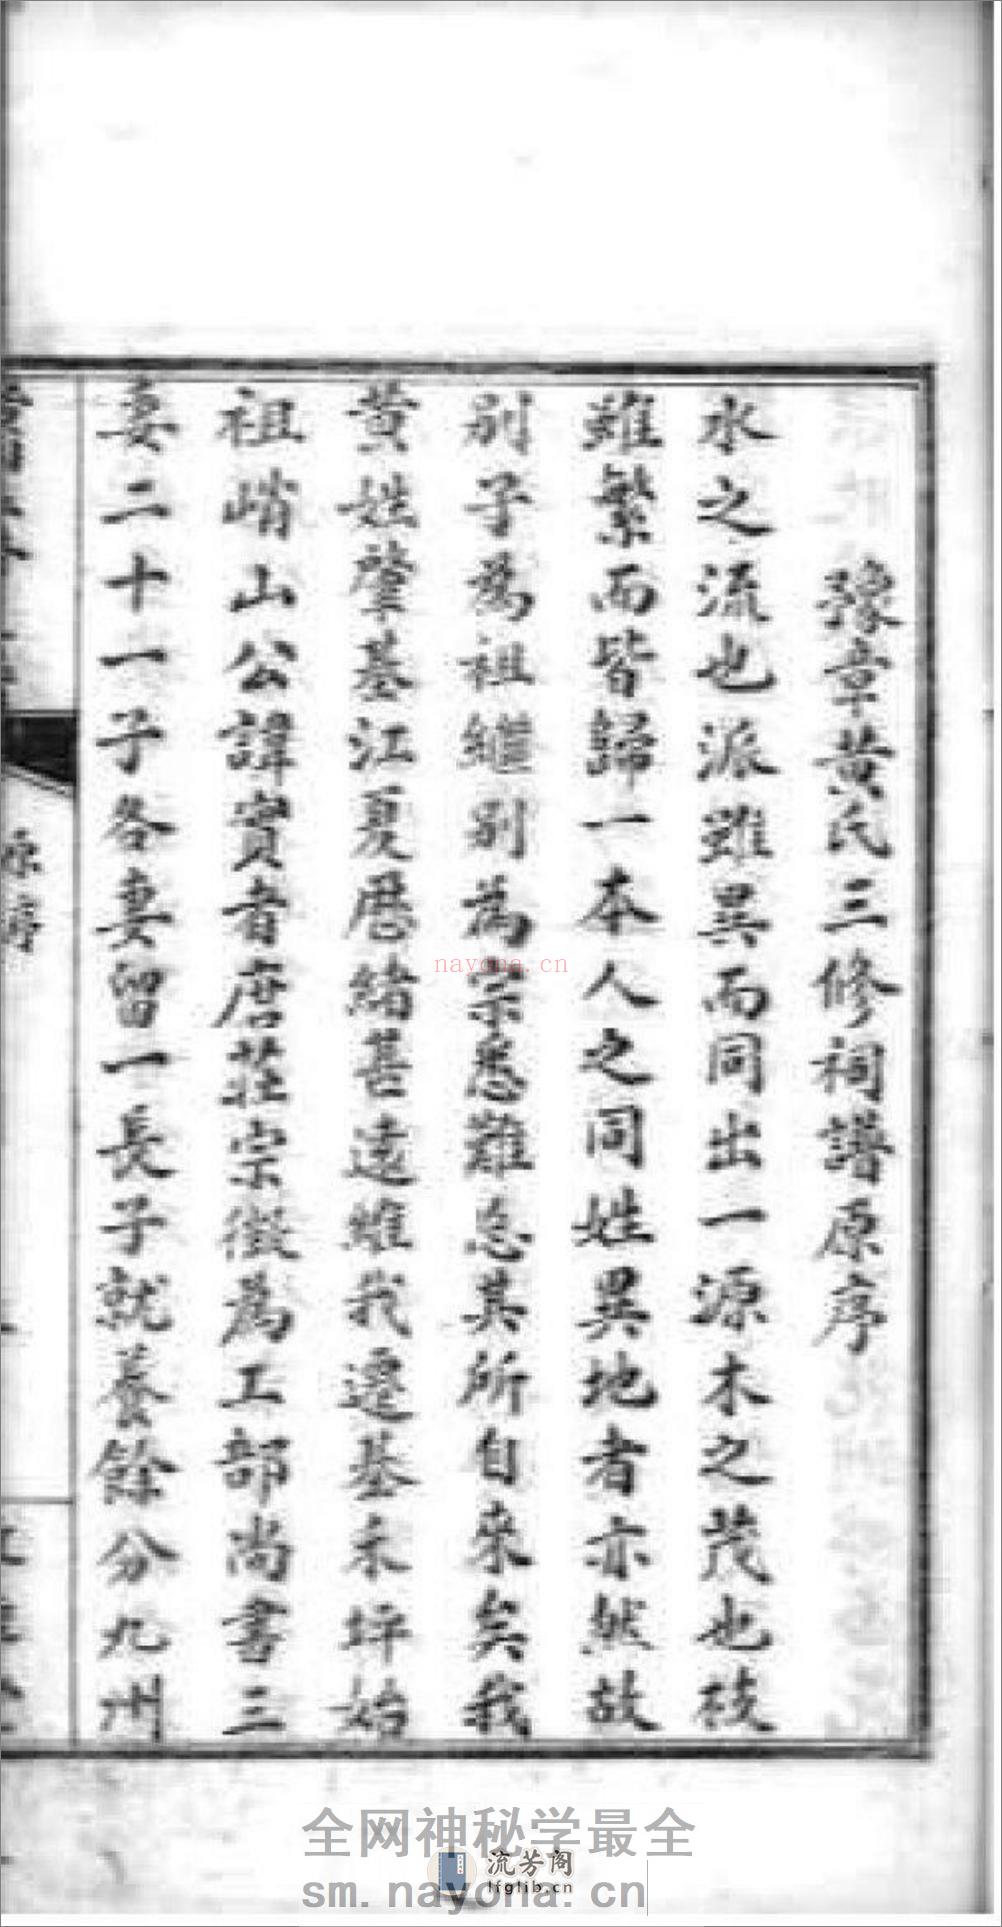 豫章黃氏三修祠譜原序
水之流也派雖異而同出一源木之茂也枝
雖繁而皆歸一本人之同姓異地者亦然故
別子為祖繼別為宗悉難忘其所自來矣我
黃姓肇基江夏歷緒甚遠維我遷基禾坪始
祖峭山公諱實者唐莊宗徵為工部尚書三
妻二十一子各妻留一長子就養餘分九州
原序
nayona.cn
全网神秘学最全
流芳阁
lfglib.cn
sm.nayona.cn